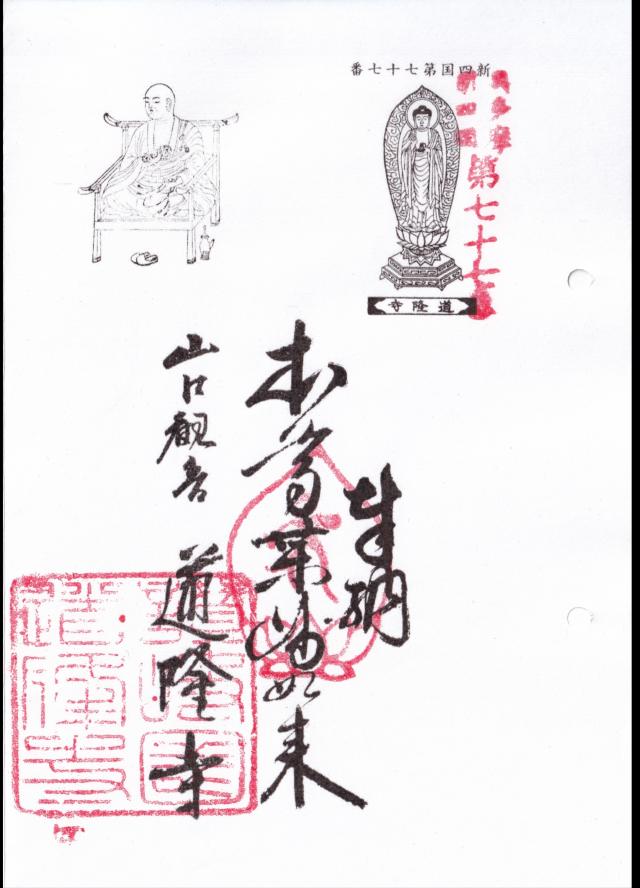 新四国第七十七番
道隆寺
第七十七番
奉納
本尊薬師如来
山口観音 道隆寺
道隆寺